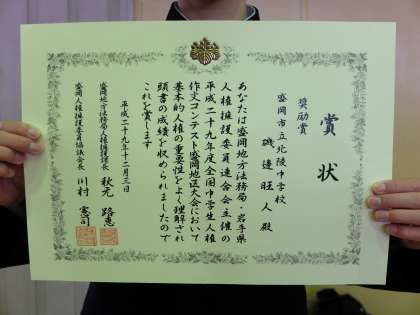 賞状
奨励賞
盛岡市立北陵中学校
磯達旺人殿
あなたは盛岡地方法務局・岩手県
人権擁護委員連合会主催の
平成二十九年度全国中学生人権
作文コンテスト盛岡地区大会において
基本的人権の重要性をよく理解され
頭書の成績を収められましたので
これを賞します
平成二十九年十二月三日
盛岡地方法務局人権擁護課長 秋元路恵
盛岡人権擁護委員協議会長 川村憲司